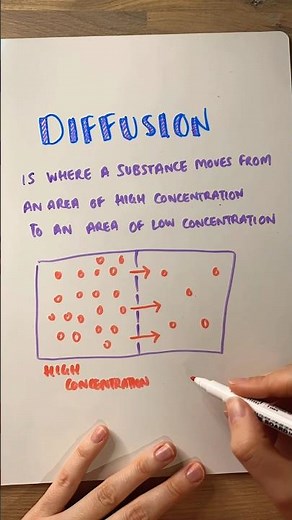 DIFFUSION
IS WHERE A SUBSTANCE MOVES FROM
AN AREA OF HIGH CONCENTRATION
TO AN AREA OF LOW CONCENTRATION
HIGH
CONCENTRATION